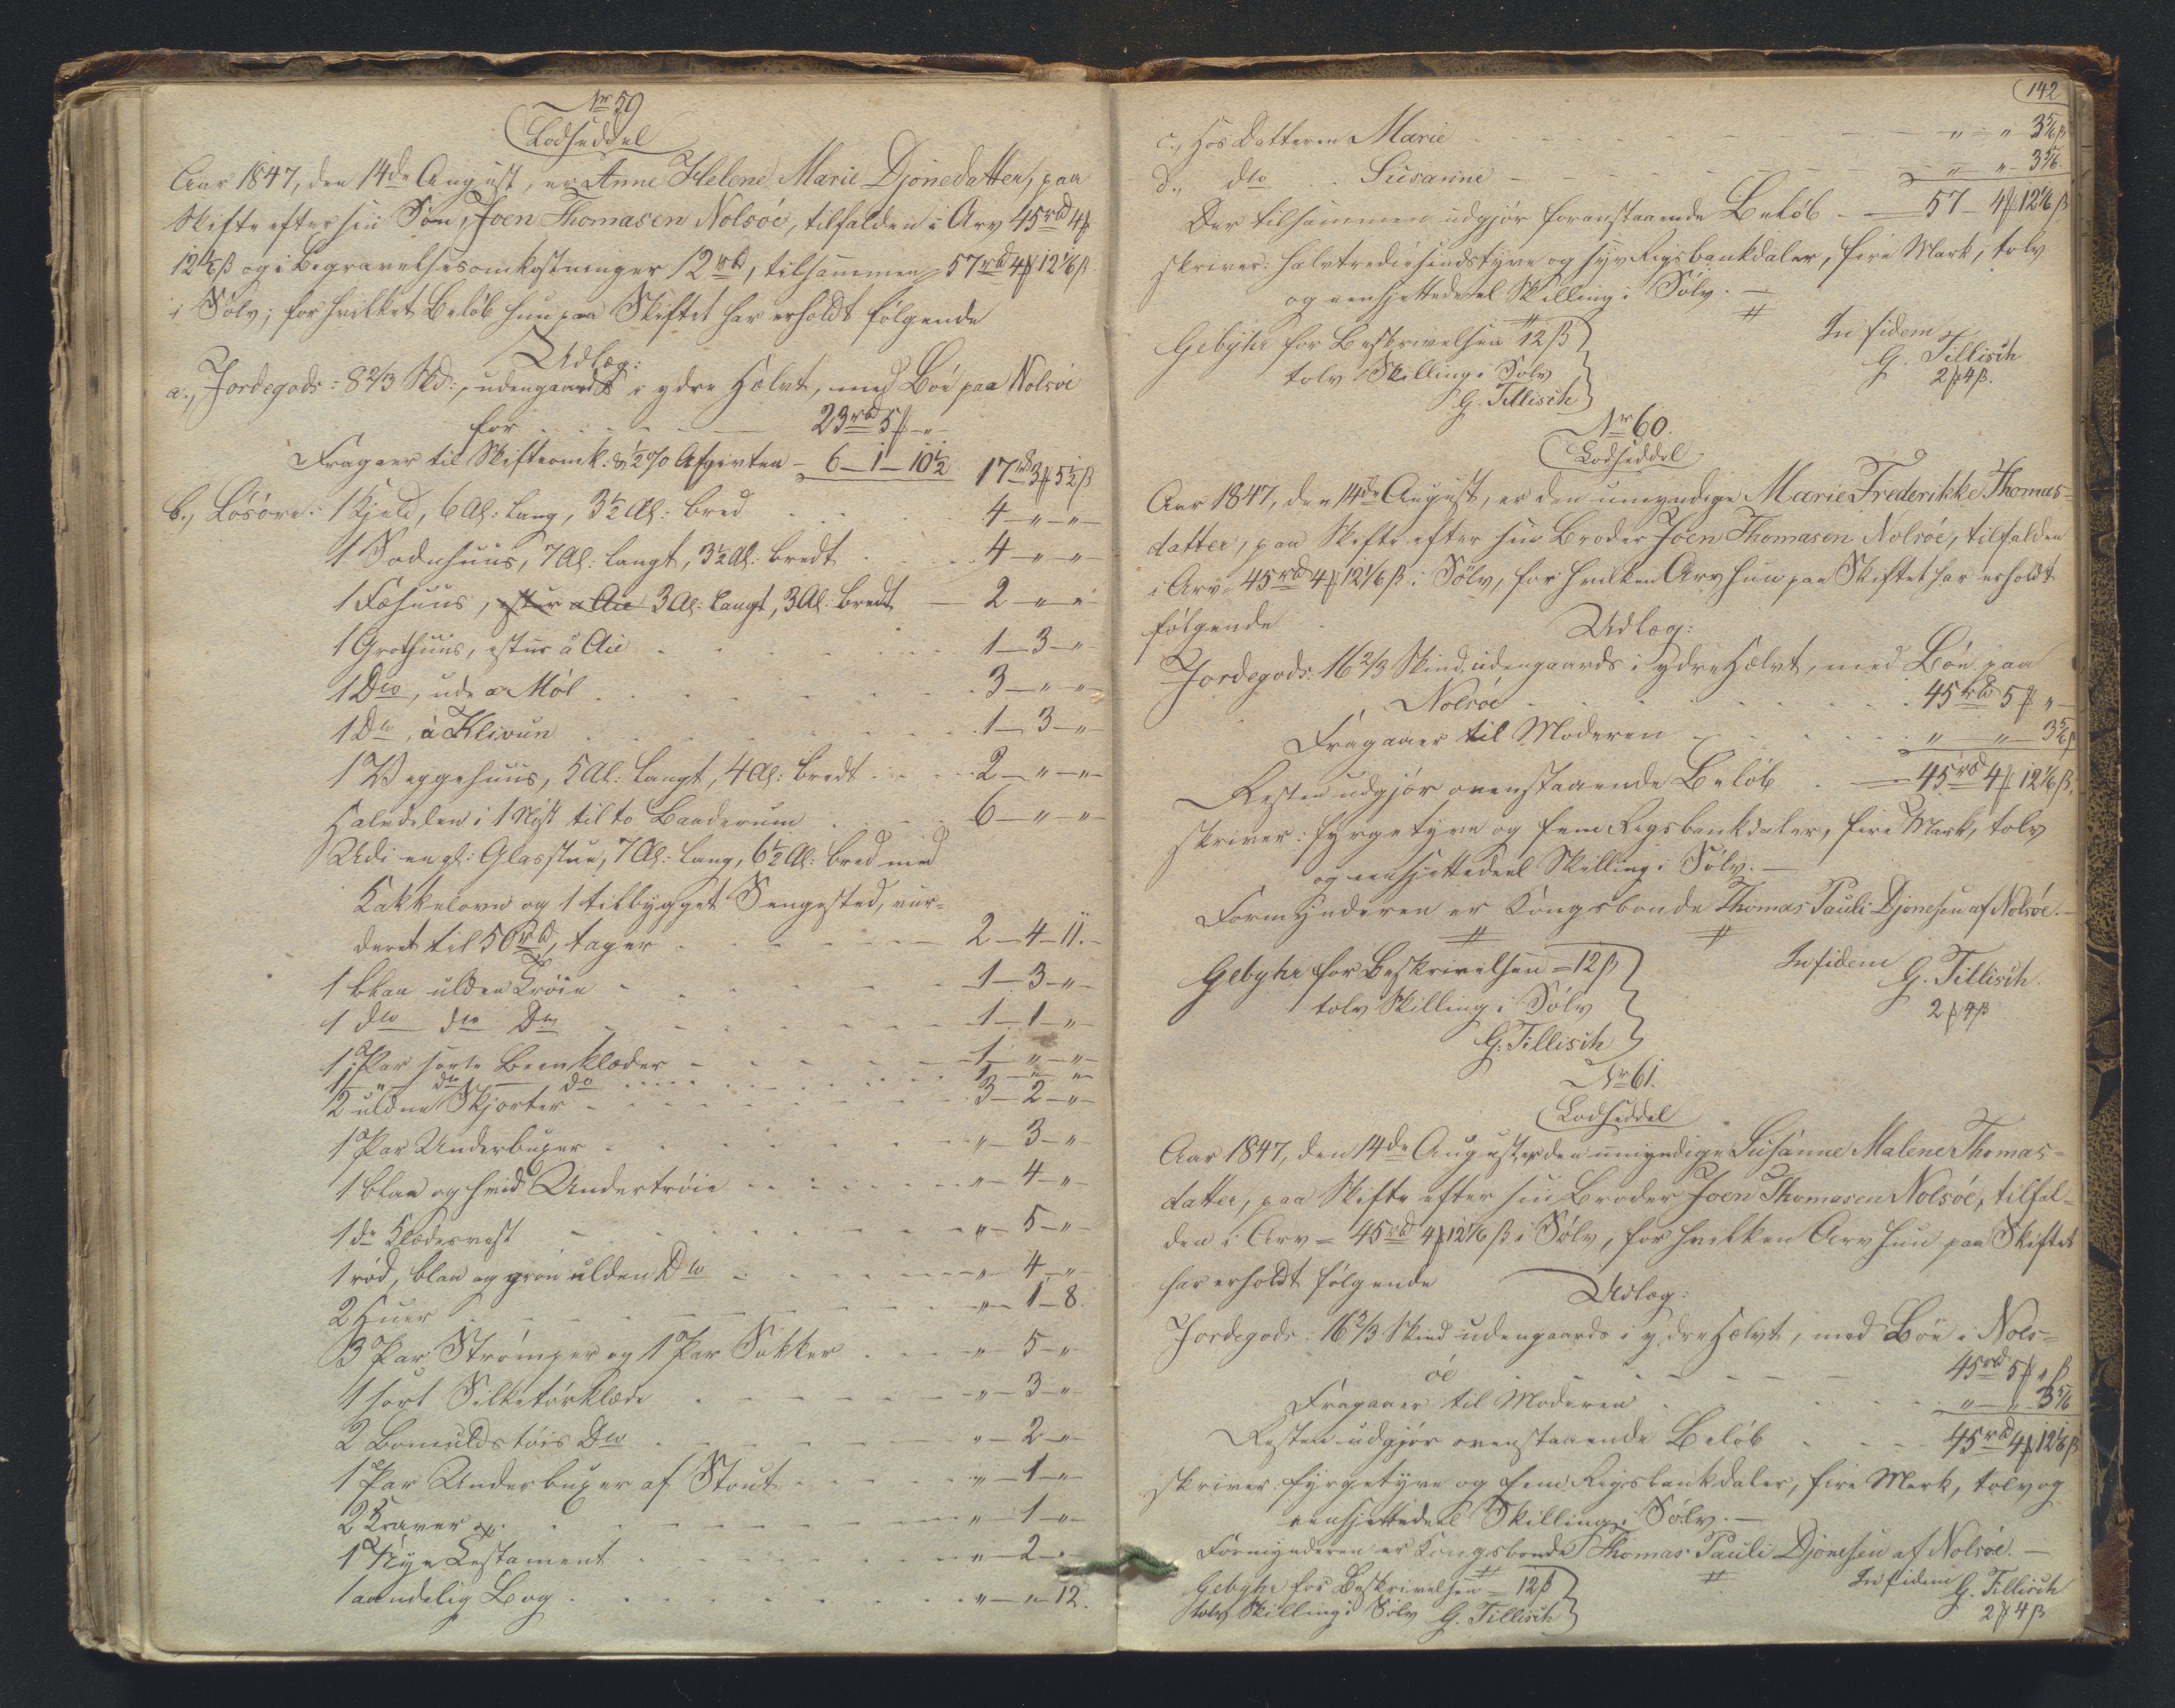 Nr 59
Lodseddel
Aar 1847, den 14de August, er Anne Helene Marie Djonedatter, paa
Skifte efter sin Søn, Joen Thomasen Nolsöe, tilfalden i Arv 45rd 4₻
12 1/6 ß og i Begravelsesomkostninger 12rd, tilsammen 57rd 4₻ 12 1/6 ß
i Sølv; for hvilket Beløb hun paa Skiftet har erholdt følgende
Udlæg:
a., Jordegods: 8 2/3 Skd:, udengaards i ydre Hælvt, med Böe paa Nolsöe
for - - - 23rd 5₻ "
Fragaaer til Skifteomk: & ½ % Afgiften - 6 - 1 - 10½ 17rd 3₻ 5½ß
b., Løsøre: 1 Kjeld, 6 Al: lang, 3½ Al: bred 4 - " - "
1 Sodnhuus, 7 Al: langt, 3½ Al: bredt 4 - " - "
1 Fæhuus, estur a Aie 3 Al: langt, 3 Al: bredt - 2 - " - "
1 Grothuus, estur á Aie 1 - 3 - "
1 Do, ude a Möl 3 - " - "
1 Do, á Klivun 1 - 3 - "
1 Veggehuus, 5 Al: langt, 4 Al: bredt 2 - " - "
Halvdelen i 1 Nøst til to Baaderum 6 - " - "
Udi en gl: Glasstue, 7 Al: lang, 6½ Al: bred med
Kakkelovn og 1 tilbygget Sengested, vur-
deret til 50rd, tager 2 - 4 - 11.
1 blaa ulden Trøie 1 - 3 - "
1 do do Do 1 - 1 - "
1 Par sorte Beenklæder 1 - " - "
1 - " - do - do 1 - " - "
2 uldne Skjorter 3 - 2 - "
1 Par Underbuxer " - 3 - "
1 blaa og hvid Undertrøie " - 4 - "
1 do Klædesvest " - 5 - "
1 rød, blaa og grøn ulden Do " - 4 - "
2 Huer " - 1 - 8.
3 Par Strømper og 1 Par Sokker " - 5 - "
1 sort Silketørklæde " - 3 - "
2 Bomuldstøis Do " - 2 - "
1 Par Underbuxer af Stout " - 1 - "
2 Kraver " - 1 - "
1 Nye Testament " - 2 - "
1 aandelig Bog " - " - 12.
142
c., Hos Datteren Marie " - " 3 5/6 ß
d., do Susanne " - " - 3 5/6
Der tilsammen udgjør foranstaaende Beløb - 57 - 4₻ 12 1/6 ß
skriver: halvtrediesindstyve og syv Rigsbankdaler, fire Mark, tolv
og eensjettedeel Skilling i Sølv. -
Gebyhr for Beskrivelsen 12 ß
tolv Skilling i Sølv
G. Tillisch
In fidem
G. Tillisch
2₻ 4ß.
Nr 60.
Lodseddel
Aar 1847, den 14de August, er den umyndige Marie Frederikke Thomas-
datter, paa Skifte efter sin Broder Joen Thomasen Nolsöe, tilfalden
i Arv 45rd 4₻ 12 1/6 ß i Sølv, for hvilken Arv hun paa Skiftet har erholdt
følgende
Udlæg:
Jordegods: 16 2/3 Skind udengaards i ydre Hælvt, med Böe paa
Nolsöe 45rd 5₻ "
Fragaaer til Moderen " - " - 3 5/6 ß
Resten udgjør ovenstaaende Beløb - 45rd 4₻ 12 1/6 ß,
skriver: fyrgetyve og fem Rigsbankdaler, fire Mark, tolv
og eensjettedeel Skilling i Sølv. -
Formynderen er Kongsbonde Thomas Pauli Djonesen af Nolsöe. -
Gebyhr for Beskrivelsen = 12 ß
tolv Skilling i Sølv
G. Tillisch
In fidem
G. Tillisch.
2₻ 4ß
Nr 61.
Lodseddel
Aar 1847, den 14de August, er den umyndige Susanne Malene Thomas-
datter, paa Skifte efter sin Broder Joen Thomasen Nolsöe, tilfal-
den i Arv = 45rd 4₻ 12 1/6 ß i Sølv, for hvilken Arv hun paa Skiftet
har erholdt følgende
Udlæg:
Jordegods: 16 2/3 Skind udengaards i ydre Hælvt, med Böe i Nols-
öe 45rd 5₻ " ß
Fragaaer til Moderen " - " 3 5/6
Resten udgjør ovenstaaende Beløb 45rd 4₻ 12 1/6 ß
skriver: fyrgetyve og fem Rigsbankdaler, fire Mark, tolv og
eensjettedeel Skilling i Sølv. -
Formynderen er Kongsbonde Thomas Pauli Djonesen af Nolsöe. -
Gebyhr for Beskrivelsen = 12 ß
tolv Skilling i Sølv G. Tillisch
In fidem G. Tillisch
2₻ 4ß